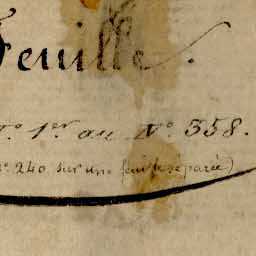 Feuille.
N.º 1.er au N.º 558.
Nº 240 sur une feuille séparée)